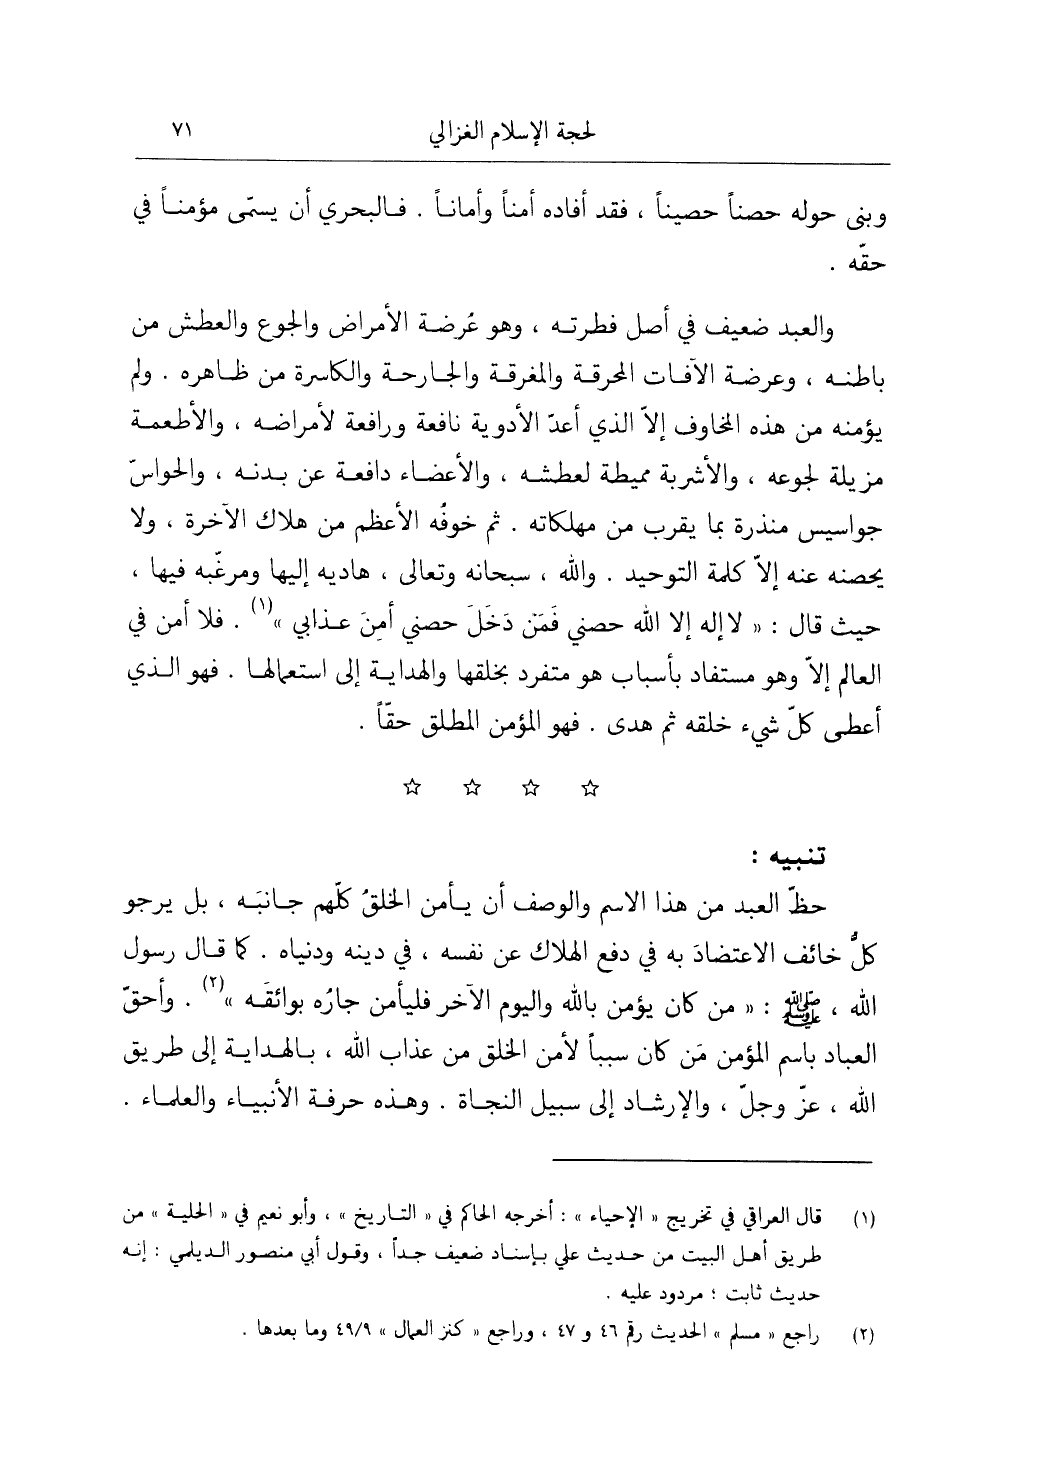 لحجة الإسلام الغزالي ٧١
وبنى حوله حصناً حصيناً ، فقد أفاده أمناً وأماناً . فـالبحري أن يسمّى مؤمنـاً في
حقّه .
والعبد ضعيف في أصل فطرتـه ، وهو عُرضـة الأمراض والجوع والعطش من
باطنـه ، وعرضـة الآفـات المحرقـة والمغرقـة والجـارحـة والكاسرة من ظـاهره . ولم
يؤمنه من هذه المخاوف إلاّ الذي أعدّ الأدوية نافعة ورافعة لأمراضـه ، والأطعمـة
مزيلة لجوعه ، والأشربة مميطة لعطشـه ، والأعضـاء دافعـة عن بـدنـه ، والحواسّ
جواسيس منذرة بما يقرب من مهلكاته . ثم خوفُه الأعظم من هلاك الآخرة ، ولا
يحصنه عنه إلاّ كلمة التوحيد . والله ، سبحانه وتعالى ، هاديه إليها ومرغّبه فيها ،
حيث قال : « لا إله إلا الله حصني فَمَن دَخَلَ حصني أمِنَ عـذابي »(١) . فلا أمن في
العالم إلاّ وهو مستفاد بأسباب هو متفرد بخلقها والهدايـة إلى استعمالهـا . فهو الـذي
أعطى كلّ شيء خلقه ثم هدى . فهو المؤمن المطلق حقّاً .
☆ ☆ ☆ ☆
تنبيه :
حظّ العبد من هذا الاسم والوصف أن يـأمن الخلقُ كلّهم جـانبَـه ، بل يرجو
كلُّ خائف الاعتضادَ به في دفع الهلاك عن نفسه ، في دينه ودنياه . كما قـال رسول
الله ، ﷺ : « من كان يؤمن بالله واليوم الآخر فليأمن جارُه بوائقَـه »(٢) . وأحقّ
العباد باسم المؤمن مَن كان سبباً لأمن الخلق من عذاب الله ، بـالهـدايـة إلى طريق
الله ، عزّ وجلّ ، والإرشـاد إلى سبيل النجـاة . وهـذه حرفـة الأنبيـاء والعلمـاء .
(١) قال العراقي في تخريج « الإحياء » : أخرجه الحاكم في « التـاريخ » ، وأبو نعيم في « الحليـة » من
طريق أهـل البيت من حـديث علي بـإسنـاد ضعيف جـداً ، وقـول أبي منصـور الـديلمي : إنـه
حديث ثابت ؛ مردود عليه .
(٢) راجع « مسلم » الحديث رقم ٤٦ و ٤٧ ، وراجع « كنز العمال » ٤٩/٩ وما بعدها .